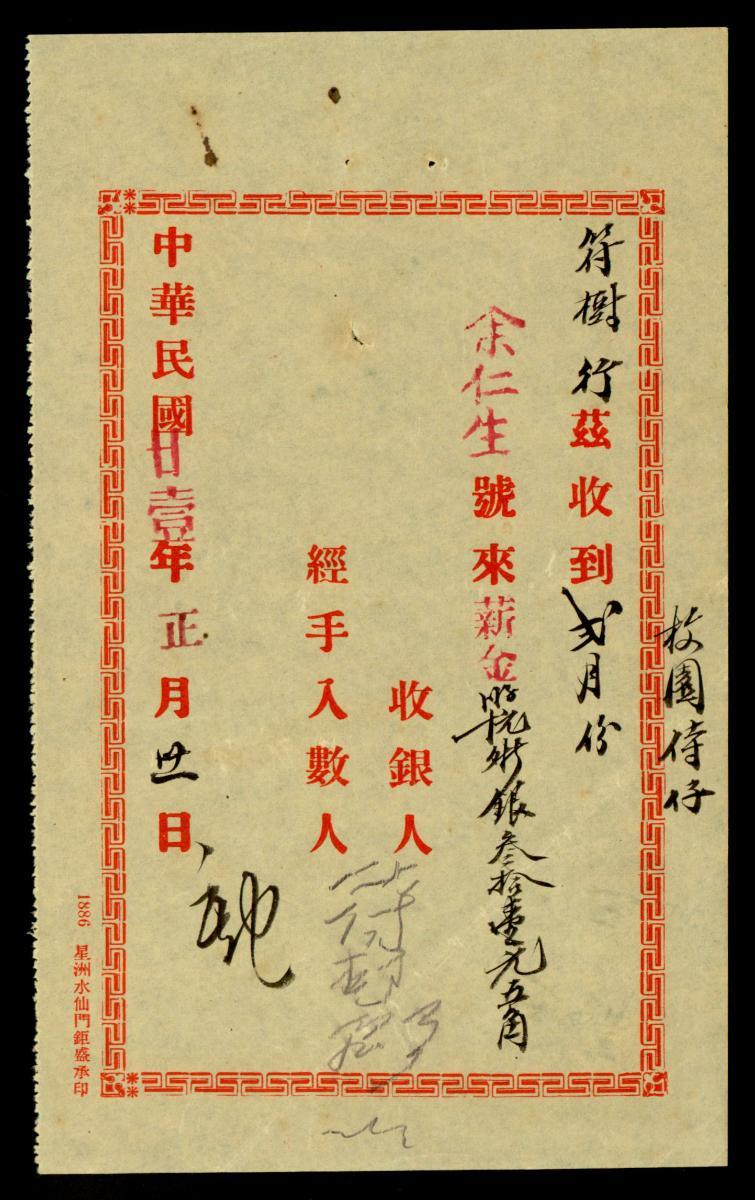 枚園侍仔
符樹行茲收到弍月份
余仁生號來薪金 銀叁拾壹元五角
收銀人
經手入數人
符
中華民國廿壹年正月卅日
1886 星洲水仙門鉅盛承印